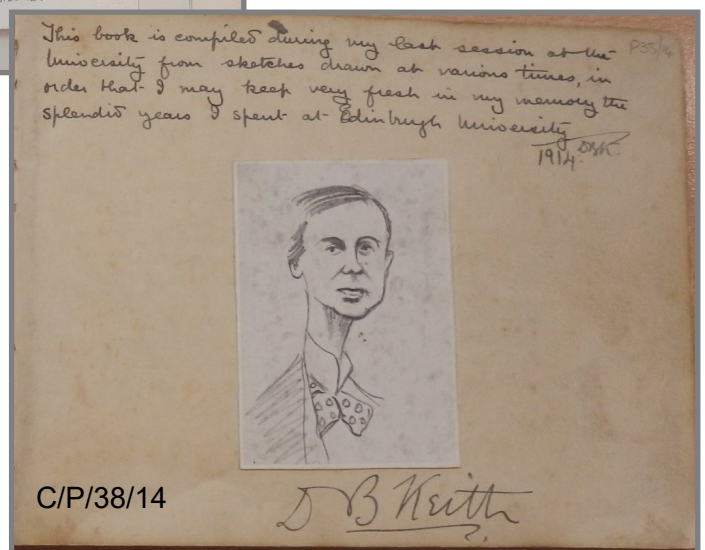 This book is compiled during my last session at the
University from sketches drawn at various times, in
order that I may keep very fresh in my memory the
splendid years I spent at Edinburgh University
1914. DBK
D B Keith
C/P/38/14